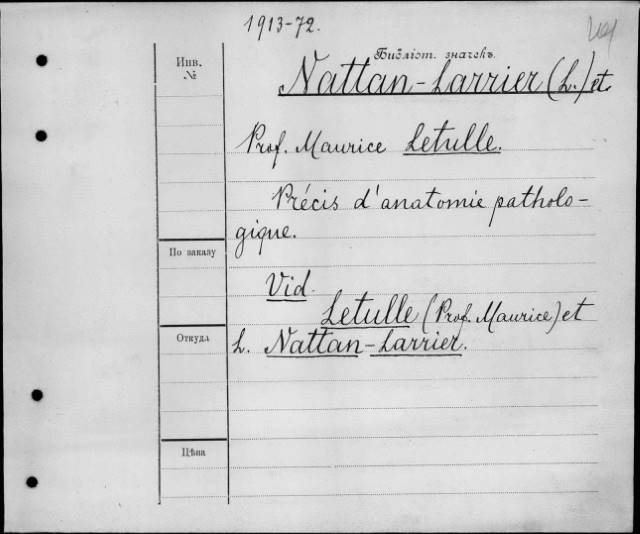 1913-72.
Библіот. значекъ.
Инв.
№
Nattan-Larrier (L.) et
Prof. Maurice Letulle.
Précis d'anatomie patholo-
gique.
По заказу
Vid.
Letulle (Prof. Maurice) et
Откуда
L. Nattan-Larrier.
Цѣна